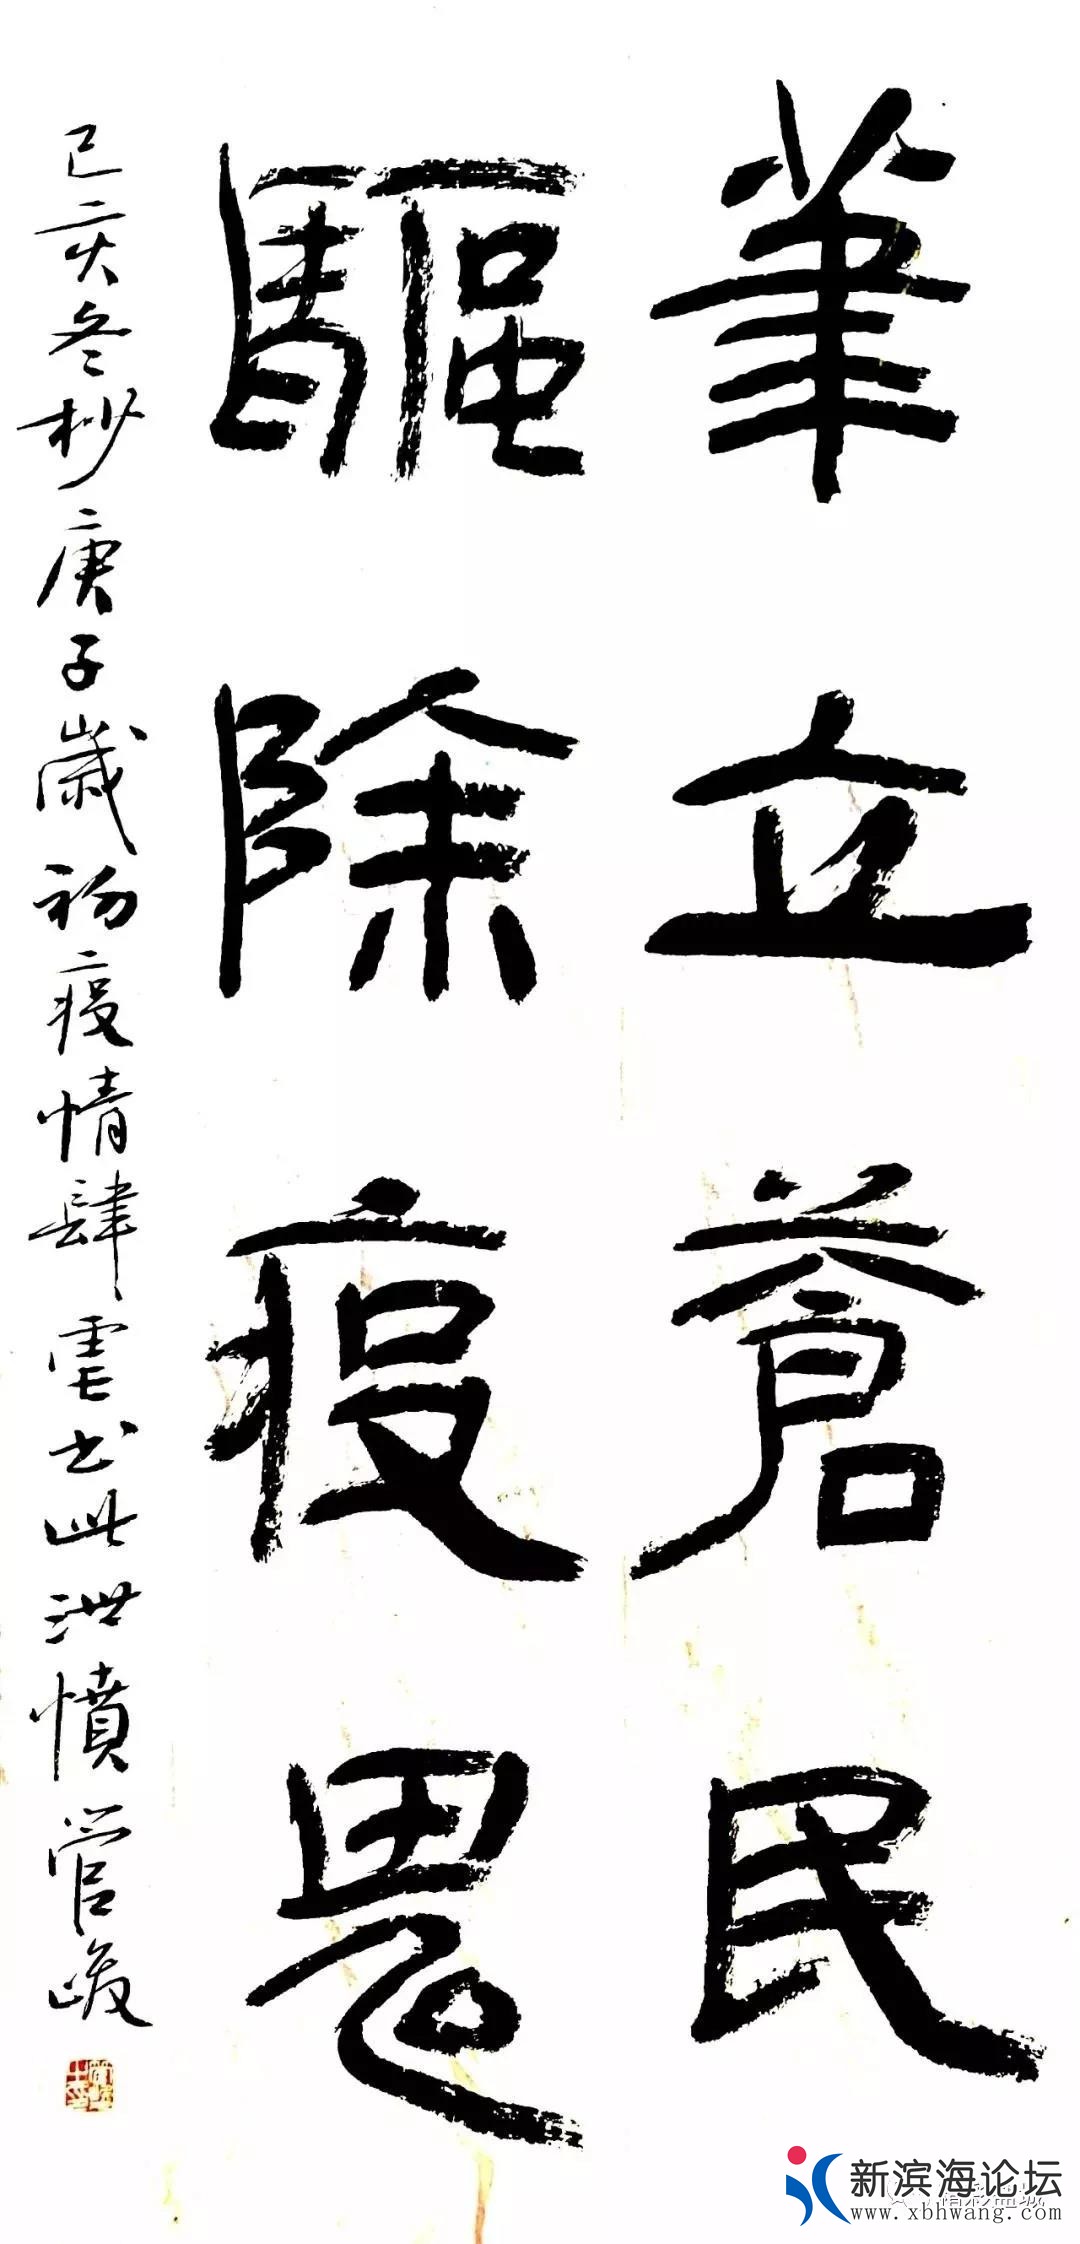 筆立蒼民
驅除疫鬼
己亥冬杪庚子歲初疫情肆虐书此泄憤管峻
新滨海论坛
www.xbhwang.com